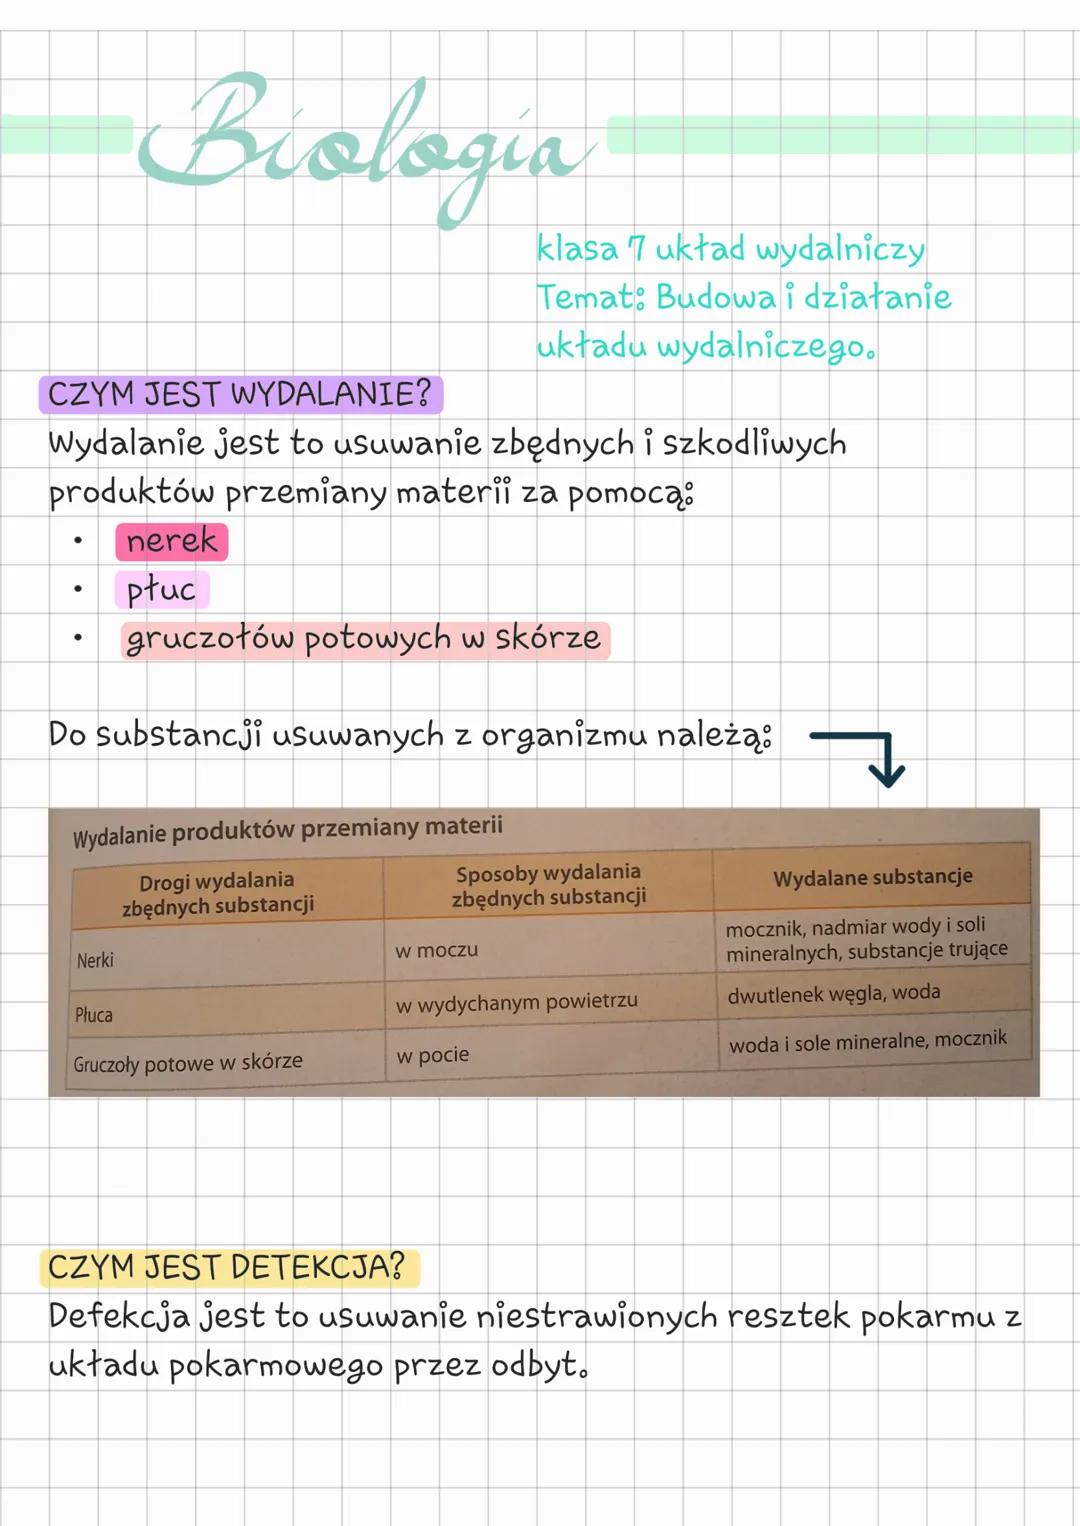 Biologia
klasa 7 układ wydalniczy
Temat: Budowa i działanie
układu wydalniczego.
CZYM JEST WYDALANIE?
Wydalanie jest to usuwanie zbędnych i szkodliwych
produktów przemiany materii za pomocą:
• nerek
• płuc
• gruczołów potowych w skórze
Do substancji usuwanych z organizmu należą:
Wydalanie produktów przemiany materii
Drogi wydalania
zbędnych substancji
Sposoby wydalania
zbędnych substancji
Wydalane substancje
Nerki
w moczu
mocznik, nadmiar wody i soli
mineralnych, substancje trujące
Płuca
w wydychanym powietrzu
dwutlenek węgla, woda
Gruczoły potowe w skórze
w pocie
woda i sole mineralne, mocznik
CZYM JEST DETEKCJA?
Defekcja jest to usuwanie niestrawionych resztek pokarmu z
układu pokarmowego przez odbyt.